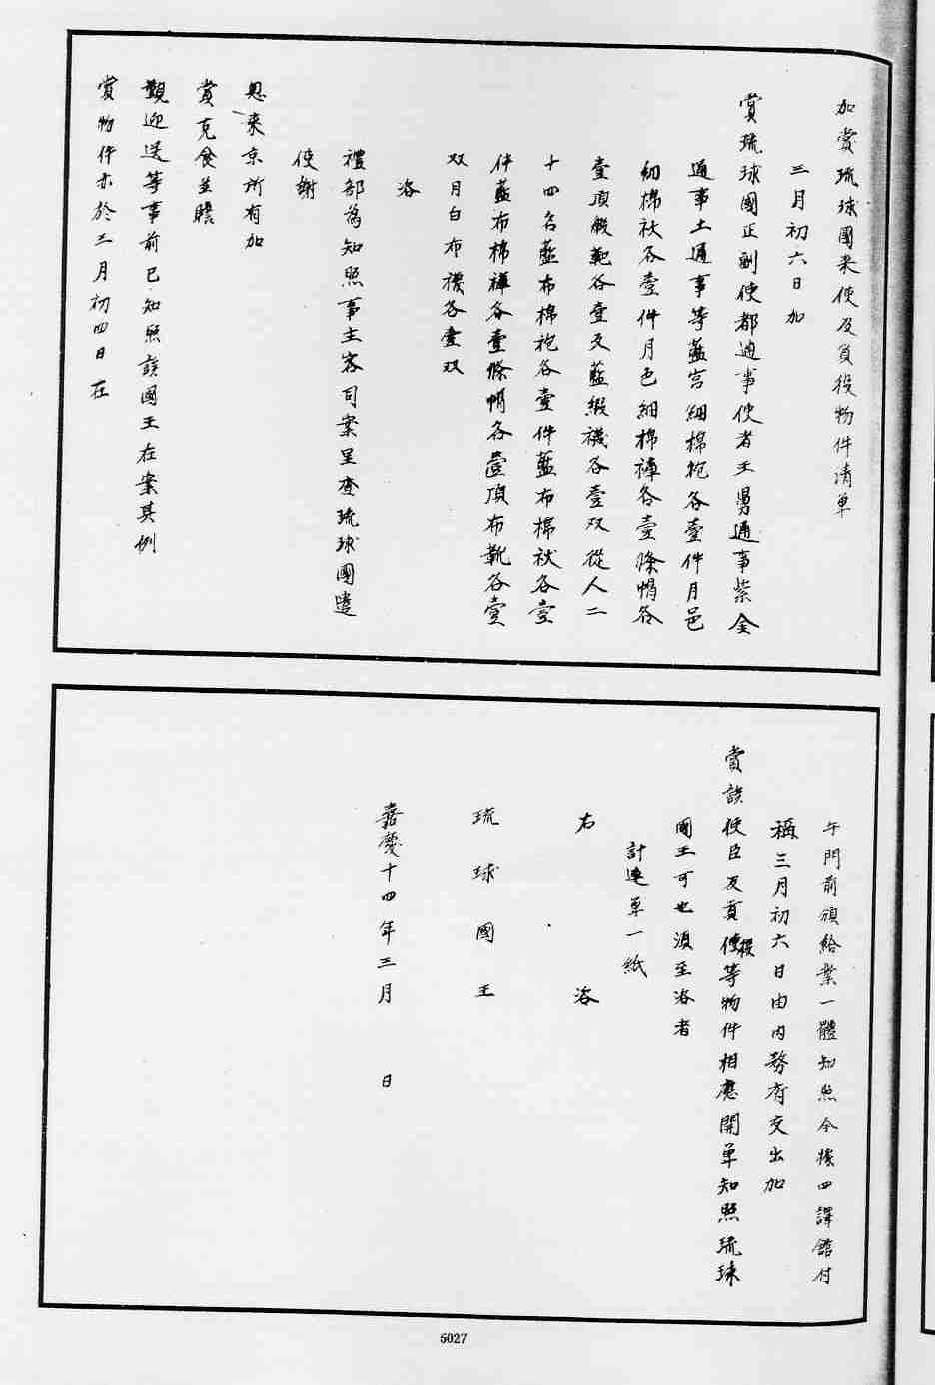 加賞琉球國来使及員役物件清单
三月初六日加
賞琉球國正副使都通事使者王舅通事紫金
通事土通事等藍宫細棉袍各壹件月色
細棉袄各壹件月色細棉褲各壹條帽各
壹頂緞靴各壹双藍緞襪各壹双從人二
十四名藍布棉袍各壹件藍布棉袄各壹
件藍布棉褲各壹條帽各壹頂布靴各壹
双月白布襪各壹双
洛
禮部為知照事主客司案呈查琉球國遣
使謝
恩来京所有加
賞克食並瞻
覲迎送等事前已知照該國王在案其例
賞物件亦於三月初四日在
午門前頒給業一體知照今據四譯舘付
稱三月初六日由内務府交出加
賞該使臣及貢使役等物件相應開单知照琉球
國王可也湏至洛者
計連单一紙
右洛
琉球國王
嘉慶十四年三月 日
5027